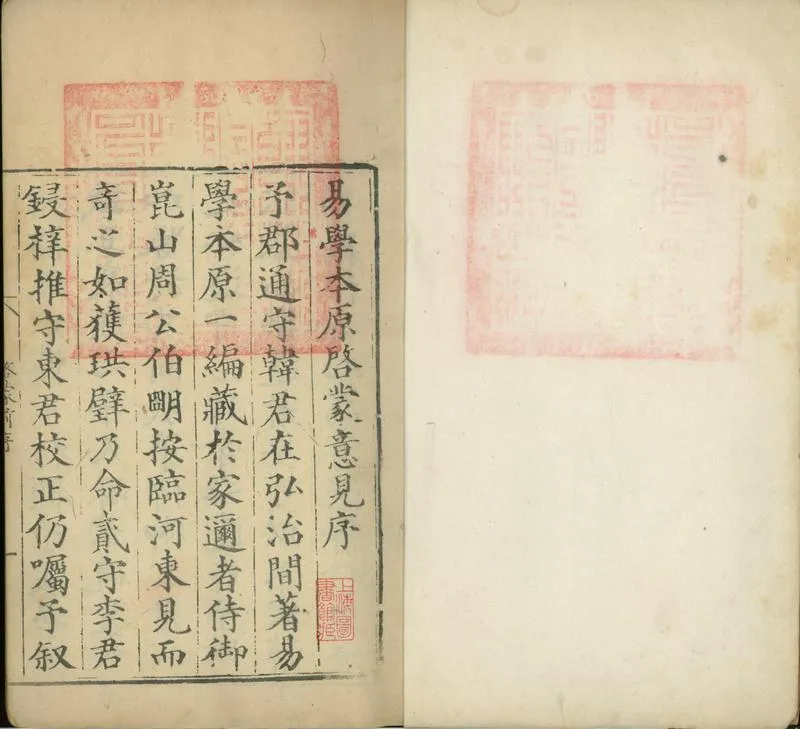 易學本原啓蒙意見序
予郡通守韓君在弘治間著易
學本原一編藏於家邇者侍御
崑山周公伯明按臨河東見而
奇之如獲珙璧乃命貳守李君
鋟梓推守東君校正仍囑予叙
上海圖
書館藏